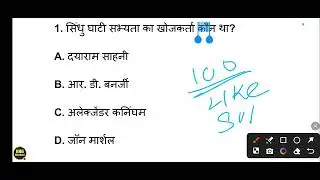 1. सिंधु घाटी सभ्यता का खोजकर्ता कौन था?
A. दयाराम साहनी
B. आर. डी. बनर्जी
C. अलेक्जेंडर कनिंघम
D. जॉन मार्शल
100
Like